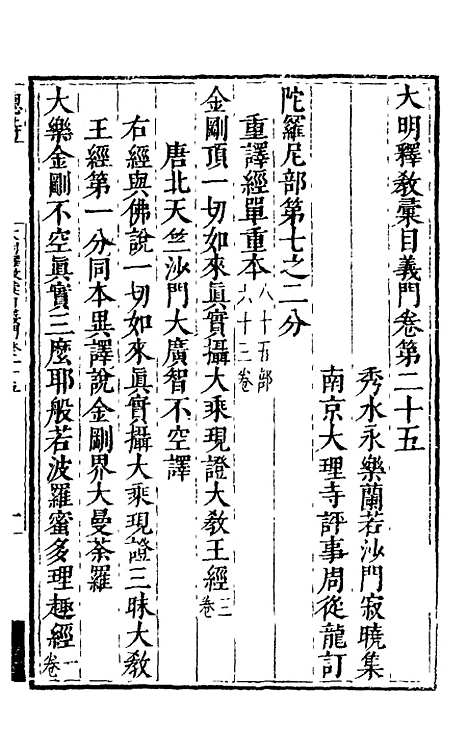 大明釋教彚目義門卷第二十五
秀水永樂蘭若沙門寂曉集
南京大理寺評事周從龍訂
陀羅尼部第七之二分
重譯經單重本八十五部六十三卷
金剛頂一切如來眞實攝大乘現證大教王經二卷
唐北天竺沙門大廣智不空譯
右經與佛說一切如來眞實攝大乘現證三昧大教
王經第一分同本異譯說金剛界大曼荼羅
大樂金剛不空眞實三麼耶般若波羅蜜多理趣經一卷